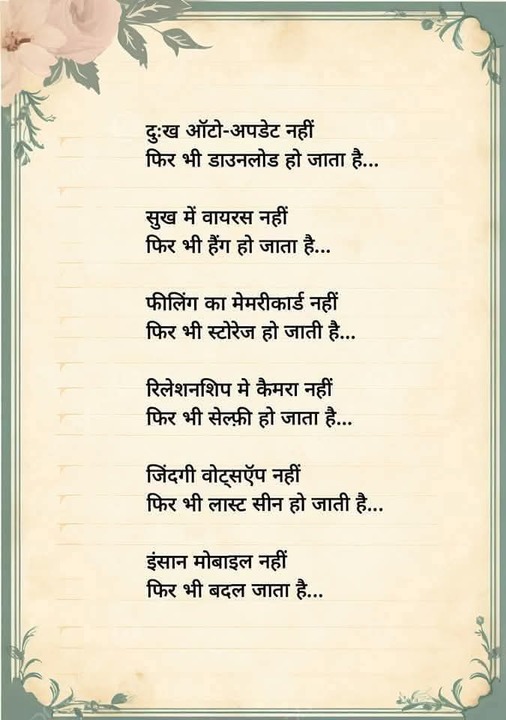 दुःख ऑटो-अपडेट नहीं
फिर भी डाउनलोड हो जाता है...
सुख में वायरस नहीं
फिर भी हैंग हो जाता है...
फीलिंग का मेमरीकार्ड नहीं
फिर भी स्टोरेज हो जाती है...
रिलेशनशिप मे कैमरा नहीं
फिर भी सेल्फ़ी हो जाता है...
जिंदगी वोट्सऍप नहीं
फिर भी लास्ट सीन हो जाती है...
इंसान मोबाइल नहीं
फिर भी बदल जाता है...